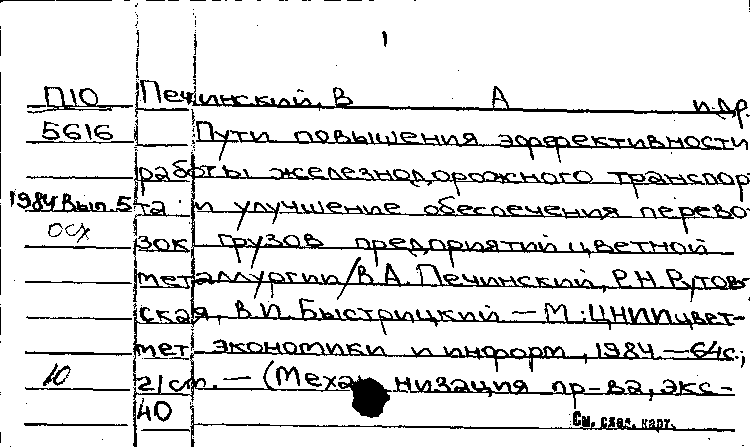 1
П10 Печинский, В А и др.
5616 Пути повышения эффективности
работы железнодорожного транспор
1984 Вып. 5 та и улучшение обеспечения перево
осх зок грузов предприятий цветной
металлургии/В.А. Печинский, Р.Н. Рутов-
ская, В.И. Быстрицкий — М.: ЦНИИцвет-
мет экономики и информ, 1984. — 64с.;
10 21 см. — (Механизация пр-ва, экс-
40 См. след. карт.